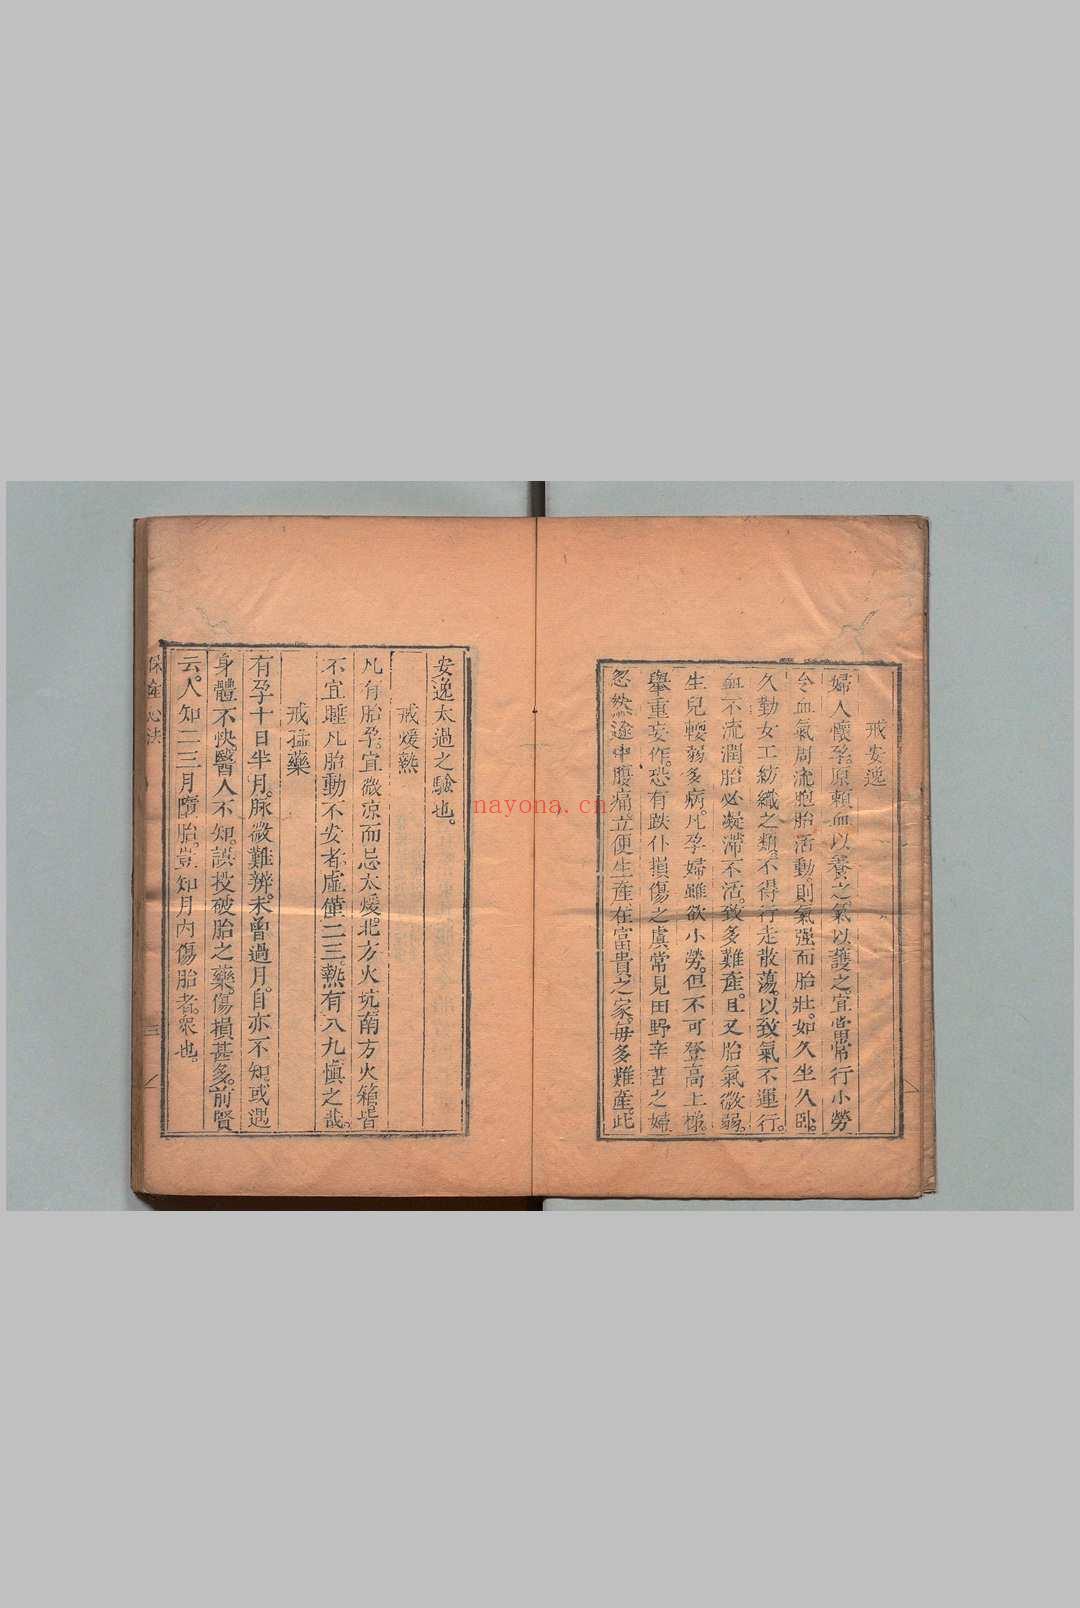 戒安逸
婦人懷孕。原賴血以養之。氣以護之。宜當常行小勞
令血氣周流。胞胎活動。則氣强而胎壯。如久坐久卧。
久勤女工紡織之類。不得行走散蕩。以致氣不運行。
血不流潤。胎必凝滯不活。致多難產。且又胎氣微弱。
生兒輭弱多病。凡孕婦雖欲小勞。但不可登高上梯。
舉重妄作。恐有跌仆損傷之虞。常見田野辛苦之婦
忽然途中腹痛。立便生產。在富貴之家。每多難產。此
安逸太過之驗也。
戒煖熱
凡有胎孕。宜微凉而忌太煖。北方火坑。南方火箱。皆
不宜睡。凡胎動不安者。虛僅二三。熱有八九。愼之哉。
戒猛藥
有孕十日半月。脉微難辨。未曾過月。自亦不知。或遇
身體不快。醫人不知。誤投破胎之藥。傷損甚多。前賢
云。人知二三月墮胎。豈知月內傷胎者。衆也。
保產心法
三
nayona.cn